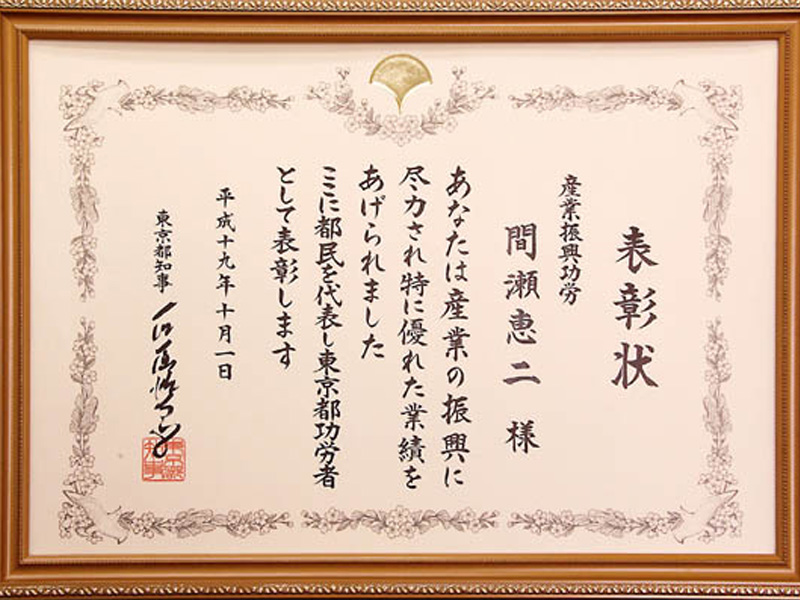 表彰状
産業振興功労
間瀬恵二 様
あなたは産業の振興に
尽力され特に優れた業績を
あげられました
ここに都民を代表し東京都功労者
として表彰します
平成十九年十月一日
東京都知事 石原慎太郎
東京都知事